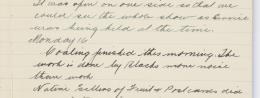 It was open on one side so that we
could see the whole show as Service
was being held at the time.
Monday 16
Coaling finished this morning. The
work is done by Blacks more noise
than work
Native Sellers of Fruit & Postcards did